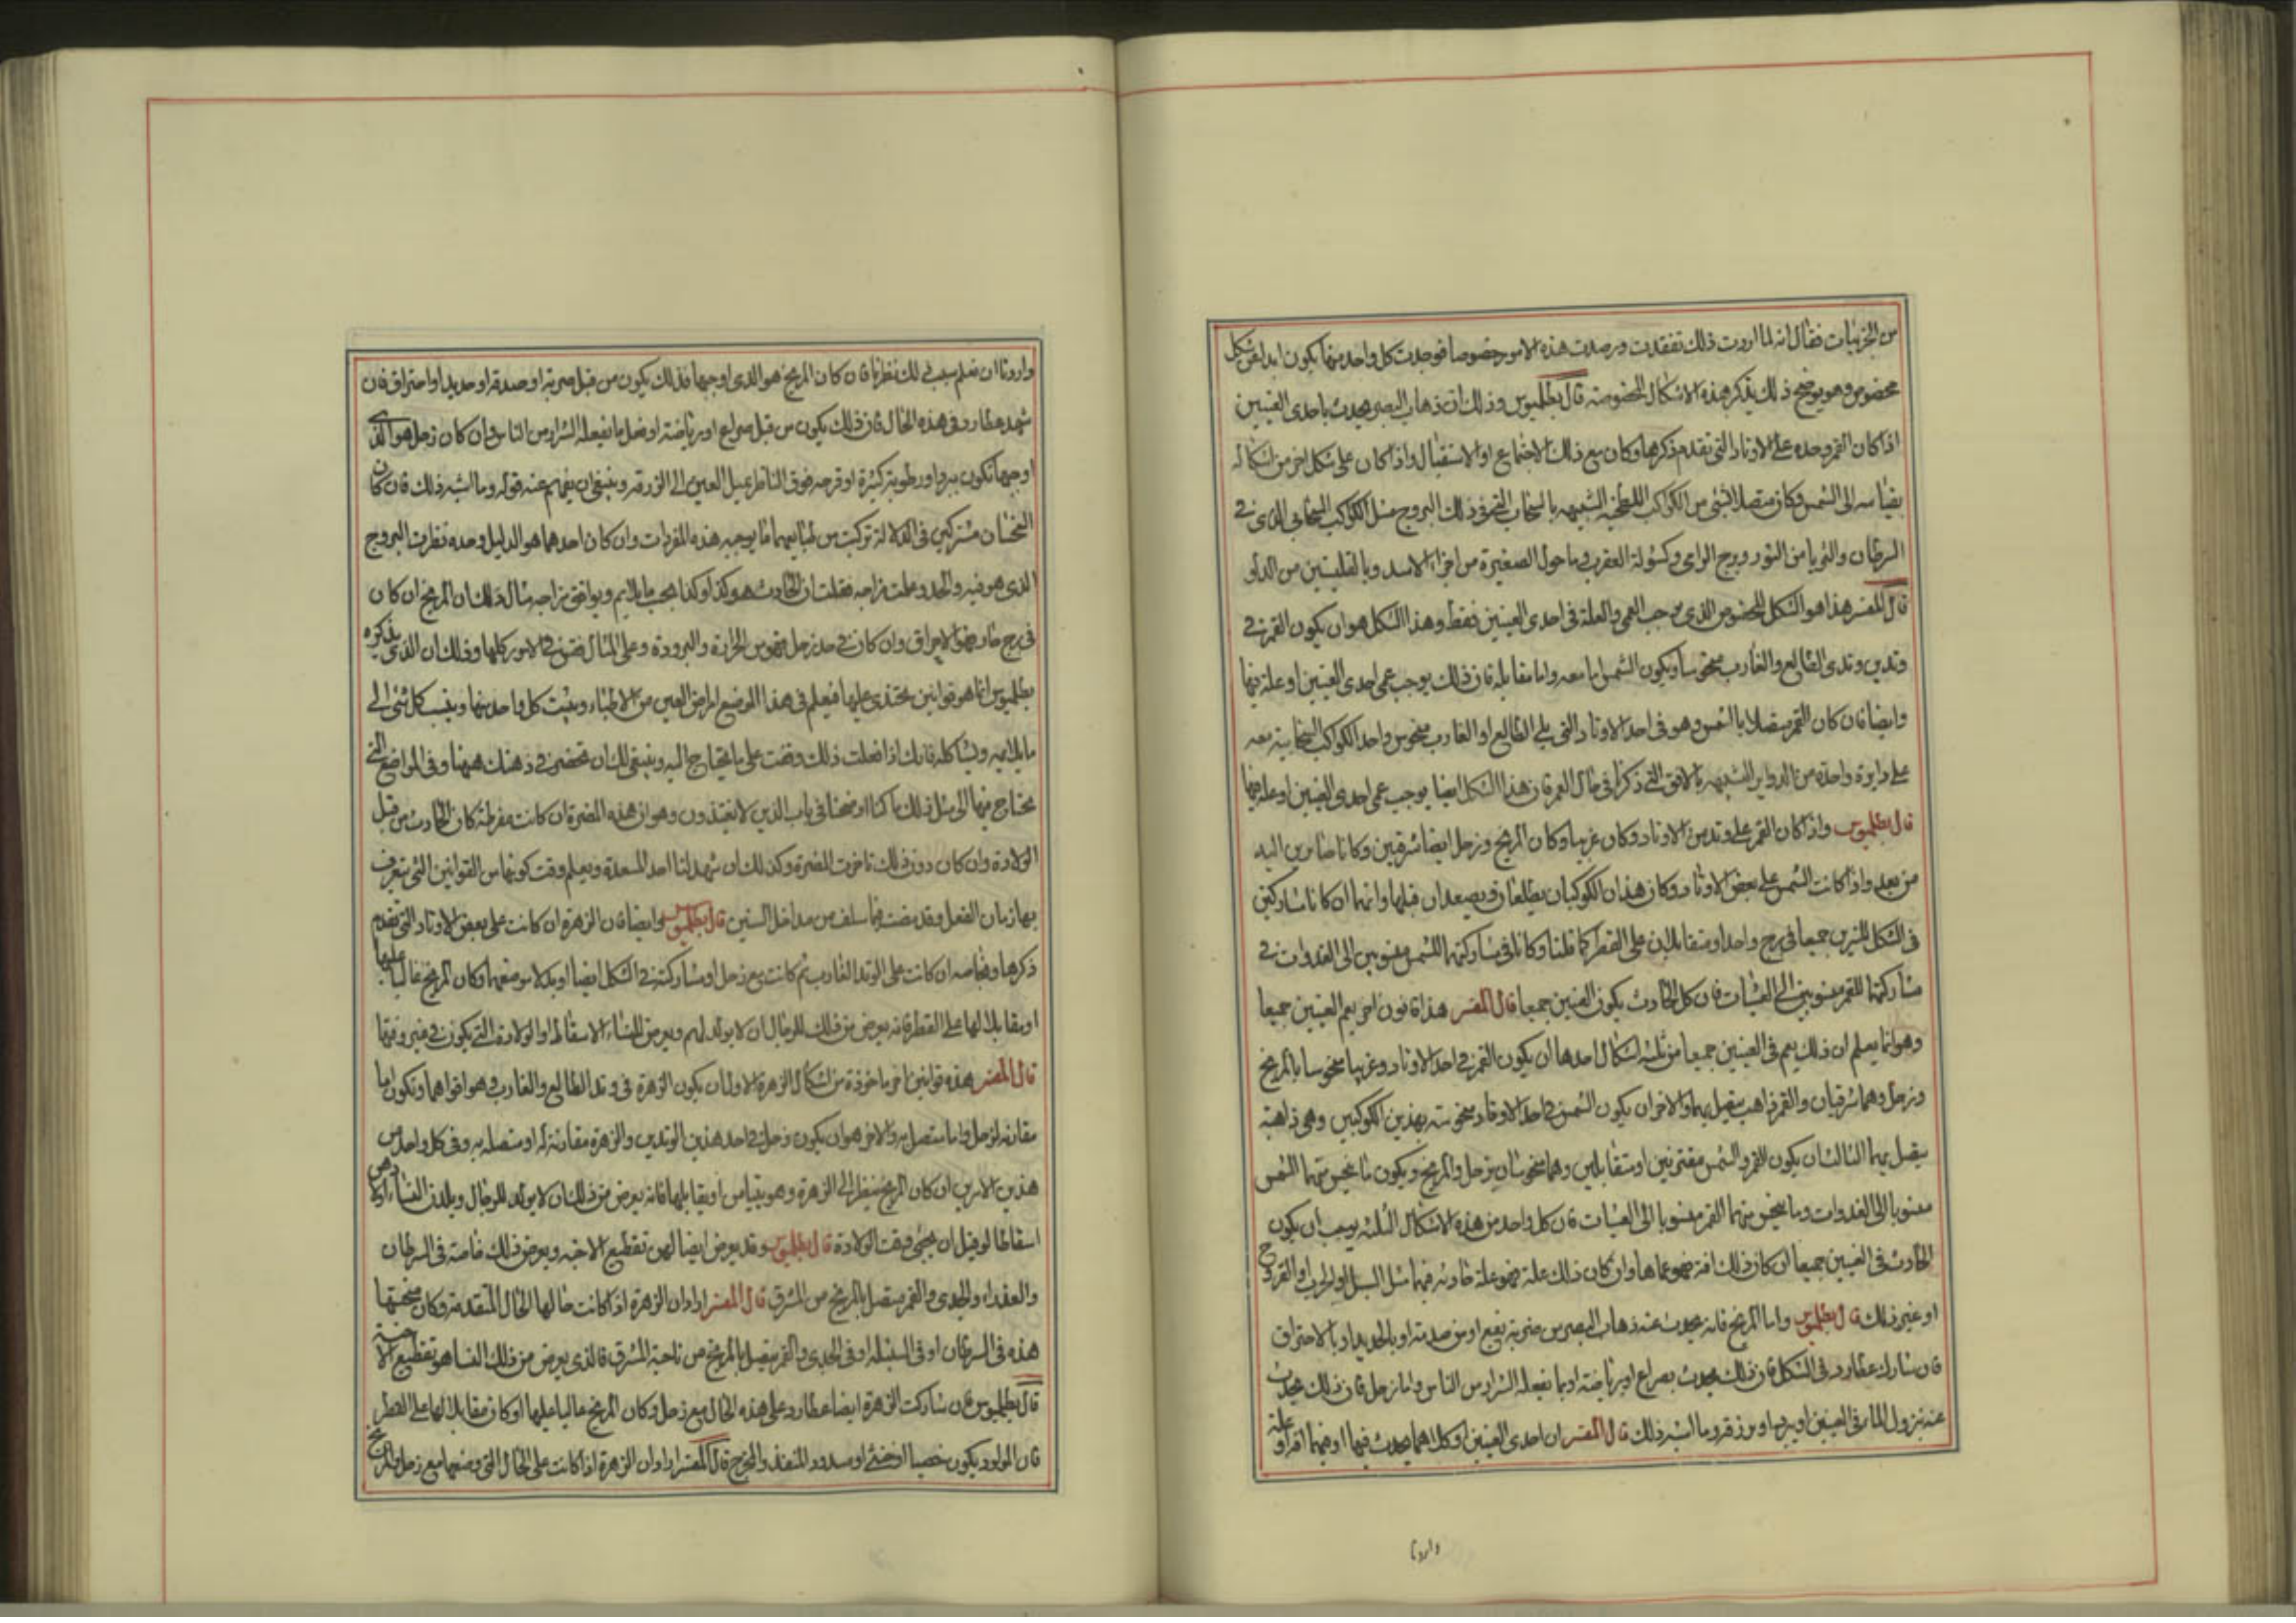 من الجزئيات فقال انه لما اردت ذلك تفقدت ورصدت هذه الامور خصوصا فوجدت كل واحد منها يكون ابدا عن شكل
مخصوص وهو يوضح ذلك بذكر هذه الاشكال المخصوصة قال بطلميوس وذلك ان ذهاب البصر يحدث باحدى العينين
اذا كان القمر وحده على الاوتاد التى تقدم ذكرها وكان مع ذلك الاجتماع او الاستقبال واذا كان على شكل اخر من اشكاله
بقياسه الى الشمس وكان متصلا بشئ من الكواكب اللطخية الشبيهه بالسحاب التى فى ذلك البروج مثل الكوكب السحابى الذى فى
السرطان والثريا من الثور وبرج الرامى وكشولة العقرب وما حول الصغيرة من اجزاء الاسد وبا من الدلو
قال المفسر هذا هو الشكل المخصوص الذى يوجب العمى والعلة فى احدى العينين فقط وهذا الشكل هو ان يكون القمر فى
وتدين وتدى الطالع والغارب منحوسا ويكون الشمس اما معه واما مقابلة فان ذلك يوجب عمى احدى العينين او علة فيها
وايضا فان كان القمر متصلا بالشمس وهو فى احد الاوتاد التى يلى الطالع او الغارب منحوس واحد الكواكب السحابية معه
على دايرة واحدة من الدواير الشبيهه بالافق التى ذكرنا فى حال العمر فان هذا الشكل ايضا يوجب عمى احدى العينين او علة فيها
قال بطلميوس واذا كان القمر على وتد من الاوتاد وكان غربيا وكان المريخ وزحل ايضا شرقيين وكانا صايرين اليه
من بعد واذا كانت الشمس على بعض الاوتاد وكان هذان الكوكبان يطلعان ويصعدان قبلها وانهما ان كانا مشاركين
فى الشكل للنيرين جميعا فى برج واحد او متقابلان على القطر كما قلنا وكانا فى مشاركتهما للشمس منسوبين الى الغدوات وفى
مشاركتهما للقمر منسوبين الى العشيات فان كل الحادث يكون العينين جميعا قال المفسر هذا قانون اخر يعم العينين جميعا
وهو انما يعلم ان ذلك يعم فى العينين جميعا من ثلثه اشكال احدها ان يكون القمر فى احد الاوتاد وغربيا منحوسا بالمريخ
وزحل وهما شرقيان والقمر ذاهب يتصل بهما والاخر ان يكون الشمس فى احد الاوتاد منحوسة بهذين الكوكبين وهى ذاهبة
يتصل بهما الثالث ان يكون القمر والشمس مقترنين او متقابلين وهما منحوسان بزحل والمريخ ويكون ما ينحس منهما الشمس
منسوبا الى الغدوات وما ينحس منهما القمر منسوبا الى العشيات فان كل واحد من هذه الاشكال الثلثه يوجب ان يكون
الحادث فى العينين جميعا ان كان ذلك افة فهو عماها وان كان ذلك علة فهو علة حادثه فيهما مثل السبل او الجرب او القروح
او غير ذلك قال بطلميوس واما المريخ فانه يحدث عنه ذهاب البصر من ضربة يقع او من صدمة او بالحديد او بالاحتراق
فان شارك عطارد فى الشكل فان ذلك يحدث بصراع او برياضة او بما يفعله الشرار من الناس واما زحل فان ذلك يحدث
عنه بنزول الماء فى العينين او ببرد او بزرقة وما اشبه ذلك قال المفسر ان احدى العينين او كلاهما يحدث فيها او فيهما افة او علة
واردنا
واردنا ان نعلم سبب ذلك نظرنا فان كان المريخ هو الذى اوجبها فذلك يكون من قبل ضربة او صدمة او حديد او احتراق فان
شهد عطارد فى هذه الحال فان ذلك يكون من قبل صراع او رياضة او فعل ما يفعله الشرار من الناس وان كان زحل هو الذى
اوجبها تكون ببرد او رطوبة كثيرة او قرحه فوق الناظر تميل العين الى الزرقه وينبغى ان يفهم عنه قوله وما اشبه ذلك فان كان
النحسان مشتركين فى الدلالة تركبت من طبايعهما ما يوجبه هذه المفردات وان كان احدهما هو الدليل وحده نظرت البروج
الذى هو فيه والحد وعلمت مزاجه فقلت ان الحادث هو كذا وكذا بحسب ما يلايم ويوافق مزاجه مثال ذلك ان المريخ ان كان
فى برج حار فهو الاحراق وان كان فى حد زحل فهو من الحرارة والبرودة وعلى المثال فقس فى الامور كلها وذلك ان الذى يذكره
بطلميوس انما هو قوانين يحتذى عليها فيعلم فى هذا الموضع امراض العين من الاطباء ويثبت كل واحد منها وينسب كل شئ الى
ما يلايمه ويشاكله فانك اذا فعلت ذلك وقفت على ما يحتاج اليه وينبغى لك ان تحضر فى ذهنك ههنا وفى المواضع التى
تحتاج فيها الى مثل ذلك ما كنا اوضحنا فى باب الذين لا يغتذون وهو ان هذه المضرة ان كانت مفرطة كان الحادث من قبل
الولادة وان كان دون ذلك تاخرت المضرة وكذلك ان شهد لنا احد السعدة ويعلم وقت كونها من القوانين التى يتعرف
بها زمان الفعل وقد مضت فيما سلف من مداخل السنين قال بطلميوس وايضا فان الزهرة ان كانت على بعض الاوتاد التى تقدم
ذكرها وخاصه ان كانت على الوتد الغارب ثم كانت مع زحل او مشاركته فى الشكل ايضا او بدلا موضعهما وكان المريخ عاليا عليها
او مقابلا لها على القطر فانه يعرض من ذلك للرجال ان لا يولد لهم ويعرض للنساء الاسقاط او الولادة التى يكون فى غير وقتها
قال المفسر هذه قوانين اخر ماخوذة من اشكال الزهرة الاول ان يكون الزهرة فى وتد الطالع والغارب وهو اقواهما وتكون اما
مقارنه لزحل واما متصل به والاخر هو ان يكون زحل فى احد هذين الوتدين والزهرة مقارنة له او متصله به وفى كل واحد من
هذين الامرين ان كان المريخ ينظر الى الزهرة وهو بقياس او يقابلها فانه يعرض من ذلك ان لا يولد للرجال ويلدن النساء اولادهن
اسقاطا لو قبل ان يجئ وقت الولادة قال بطلميوس وقد يعرض ايضا لهن تقطيع الاجنه ويعرض ذلك خاصة فى السرطان
والعذراء والجدى والقمر متصل بالمريخ من المشرق قال المفسر اراد ان الزهرة اذا كانت حالها الحال المتقدمة وكان منحسها
هذه فى السرطان او فى السنبله او فى الجدى والقمر متصل بالمريخ من ناحية المشرق فالذى يعرض من ذلك النساء هو تقطيع الاجنة
قال بطلميوس فان شاركت الزهرة ايضا عطارد وعلى هذه الحال مع زحل وكان المريخ عاليا عليها او كان مقابلا لها على القطر
فان المولود يكون خصيا او خنثى او مسدود المنفذ والمخرج قال المفسر اراد ان الزهرة اذا كانت على الحال التى وضعها مع زحل والمريخ